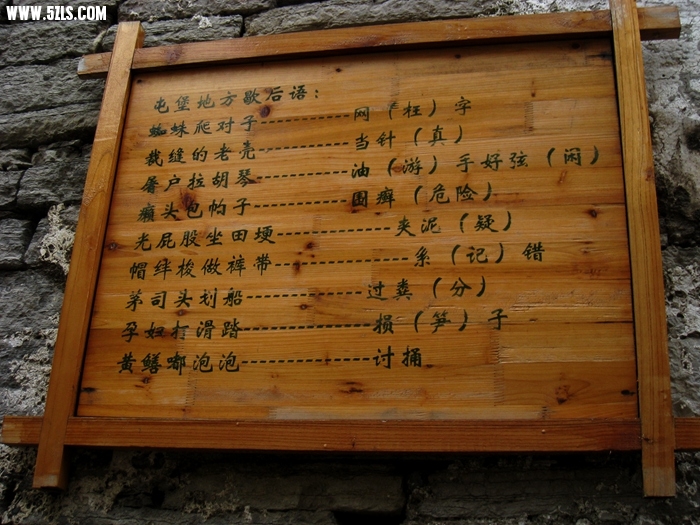 WWW.5ZLS.COM
屯堡地方歇后语：
蜘蛛爬对子----------网（枉）字
裁缝的老壳----------当针（真）
屠户拉胡琴----------油（游）手好弦（闲）
癞头包帕子----------围癣（危险）
光屁股坐田埂----------夹泥（疑）
帽绊梭做裤带----------系（记）错
茅司头划船----------过粪（分）
孕妇打滑踏----------损（笋）子
黄鳝嘟泡泡----------讨捅